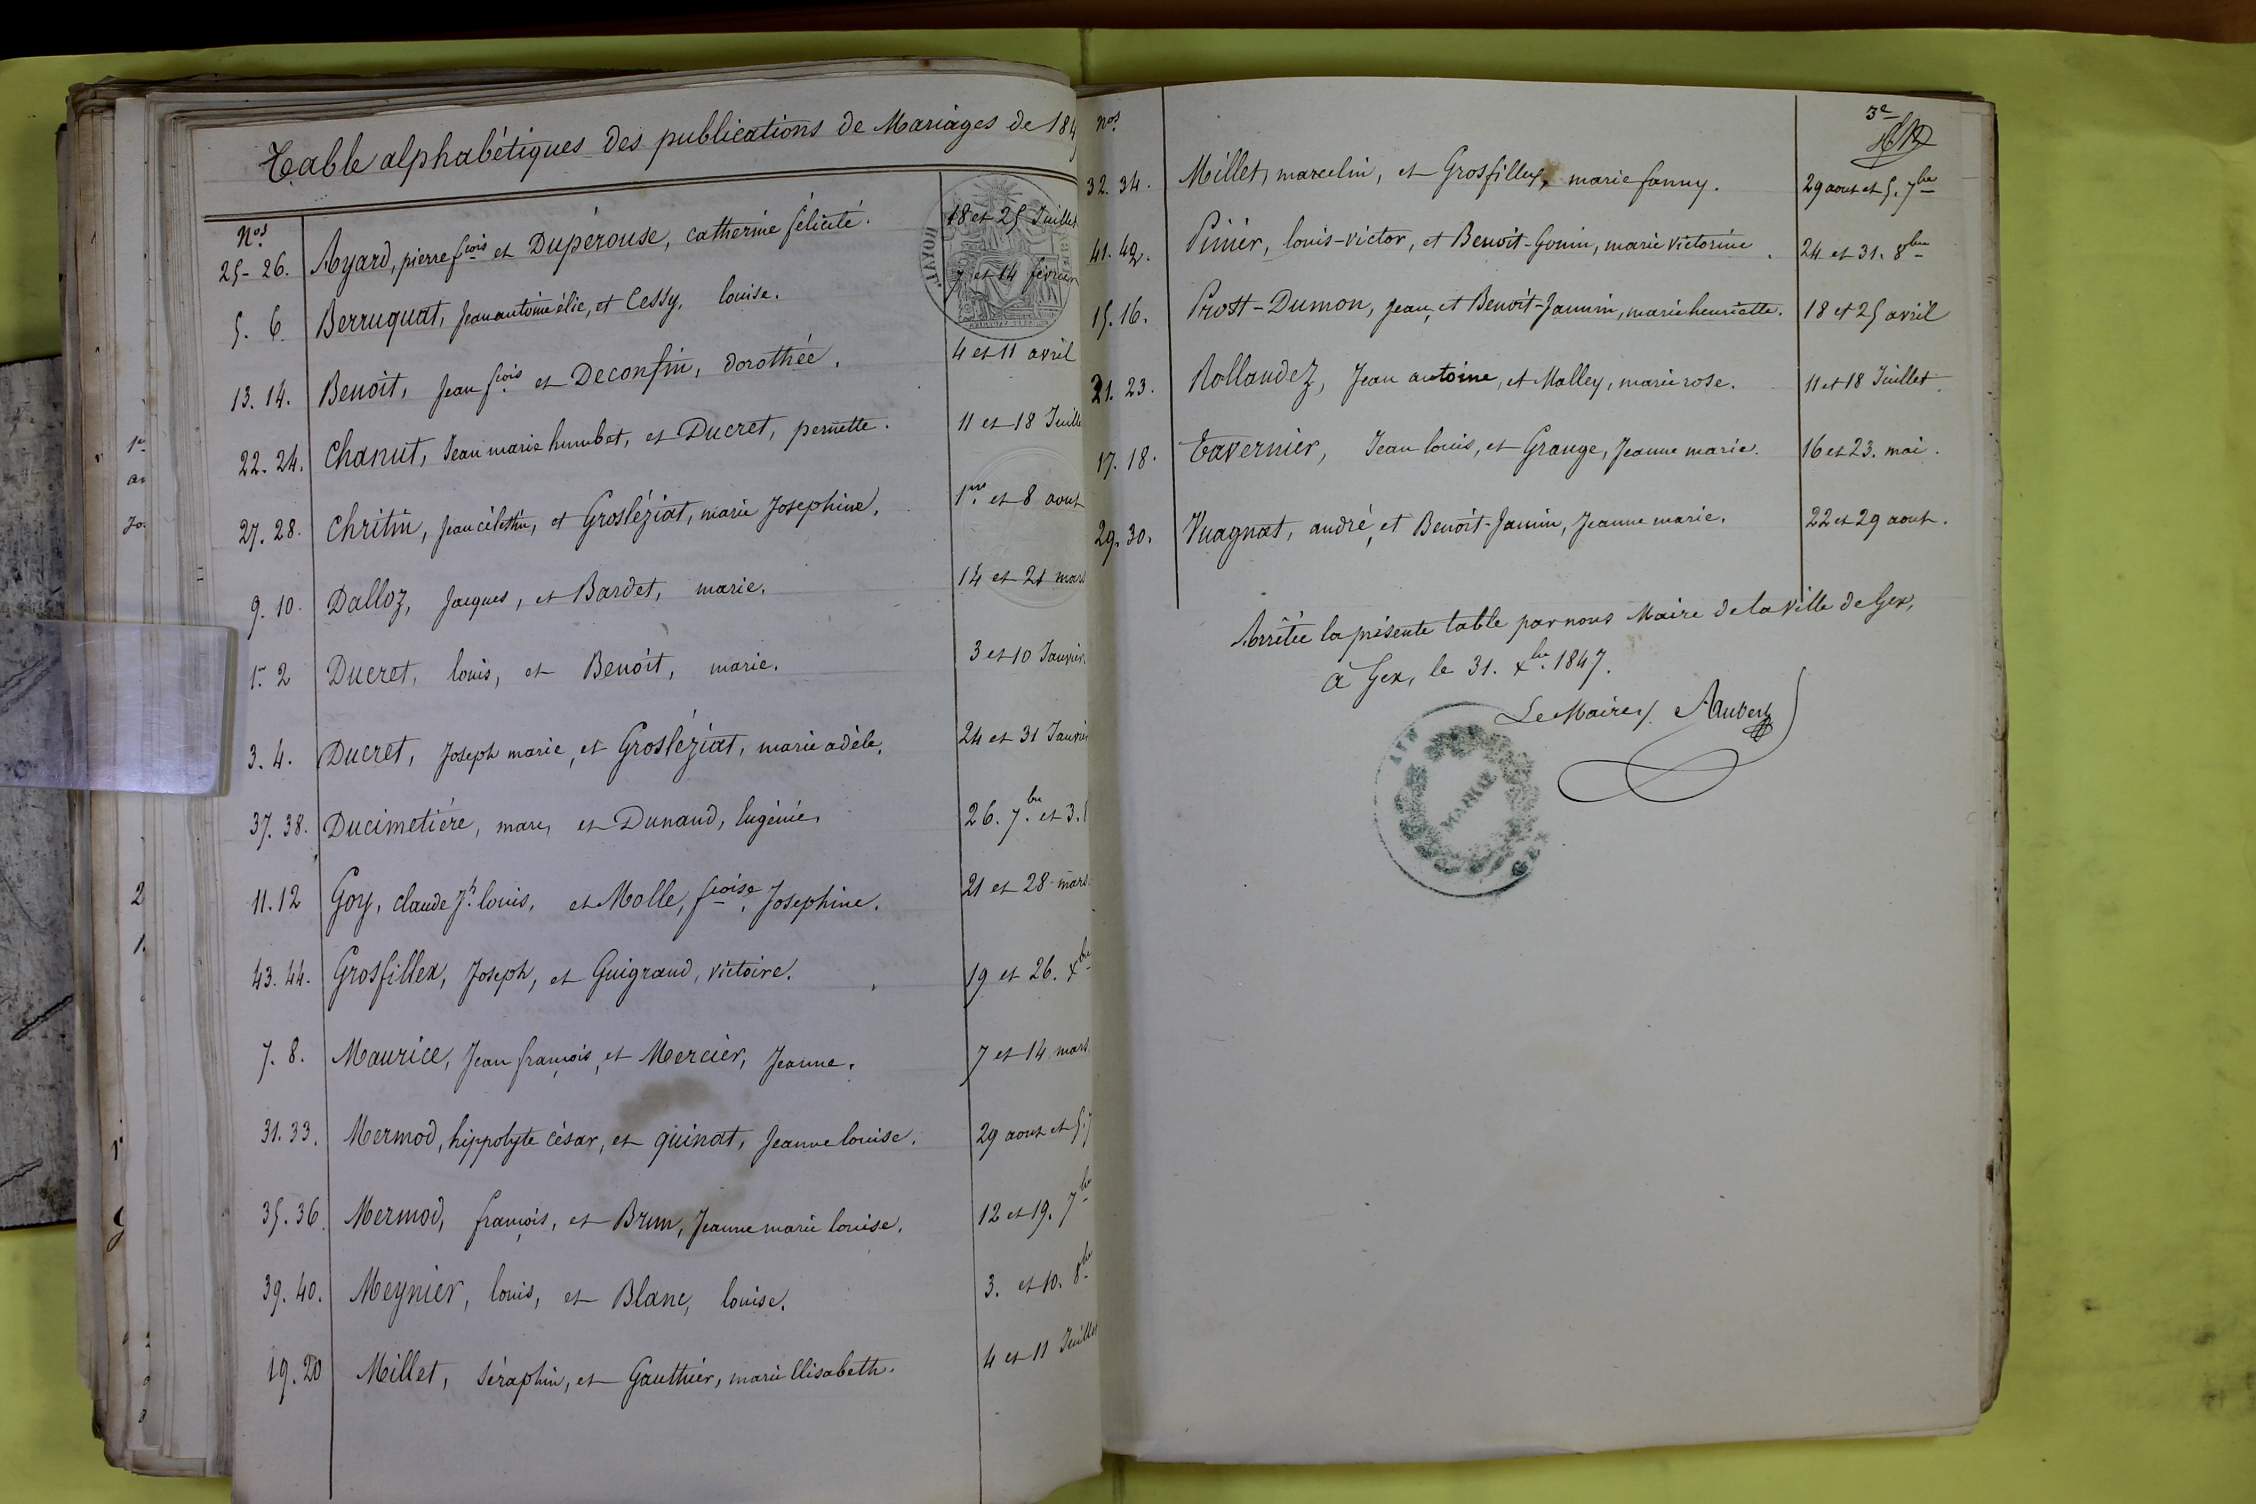 Table alphabétiques des publications de Mariages de 184
Nos.
25-26. Ayard, pierre fçois et Dupérouse, catherine félicité. 18 et 25 Juillet
5. 6. Berruquat, Jean antoine élie, et Cessy, louise. 7 et 14 février
13. 14. Benoit, Jean fçois et Deconfin, dorothée. 4 et 11 avril
22. 24. Chanut, Jean marie humbet, et Ducret, pernette. 11 et 18 Juille
27. 28. Chritin, Jean célestin, et Grosléziat, marie Josephine. 1er et 8 aout
9. 10. Dalloz, Jacques, et Bardet, marie. 14 et 21 mars
1. 2 Ducret, louis, et Benoit, marie. 3 et 10 Janvier
3. 4. Ducret, Joseph marie, et Grosléziat, marie adèle. 24 et 31 Janvier
37. 38. Ducimetière, marc, et Dunand, Eugénie. 26. 7bre et 3.
11. 12 Goy, claude Jh louis, et Molle, fçoise Josephine. 21 et 28 mars
43. 44. Grosfillex, Joseph, et Guigrand, victoire. 19 et 26. xbre
7. 8. Maurice, Jean françois, et Mercier, Jeanne. 7 et 14 mars
31. 33. Mermod, hippolyte césar, et quinat, Jeanne louise. 29 aout et 5.
35. 36 Mermod, françois, et Brun, Jeanne marie louise. 12 et 19. 7bre
39. 40. Meynier, louis, et Blanc, louise. 3. et 10. 8bre
19. 20 Millet, Séraphin, et Gauthier, marie Elisabeth. 4 et 11 Juillet
nos. 3e
32. 34. Millet, marcelin, et Grosfillex, marie fanny. 29 aout et 5. 7bre
41. 42. Pinier, louis-victor, et Benoit-Gonin, marie victorine. 24 et 31. 8bre
15. 16. Prost-Dumon, Jean, et Benoit-Jannin, marie henriette. 18 et 25 avril
21. 23. Rollandez, Jean antoine, et Malley, marie rose. 11 et 18 Juillet
17. 18. Tavernier, Jean louis, et Grange, Jeanne marie. 16 et 23. mai.
29. 30. Vuagnat, andré, et Benoit-Jannin, Jeanne marie. 22 et 29 aout.
Arrêtée la présente table par nous Maire de la ville de Gex,
à Gex, le 31. xbre 1847.
Le Maire,
MAIRIE